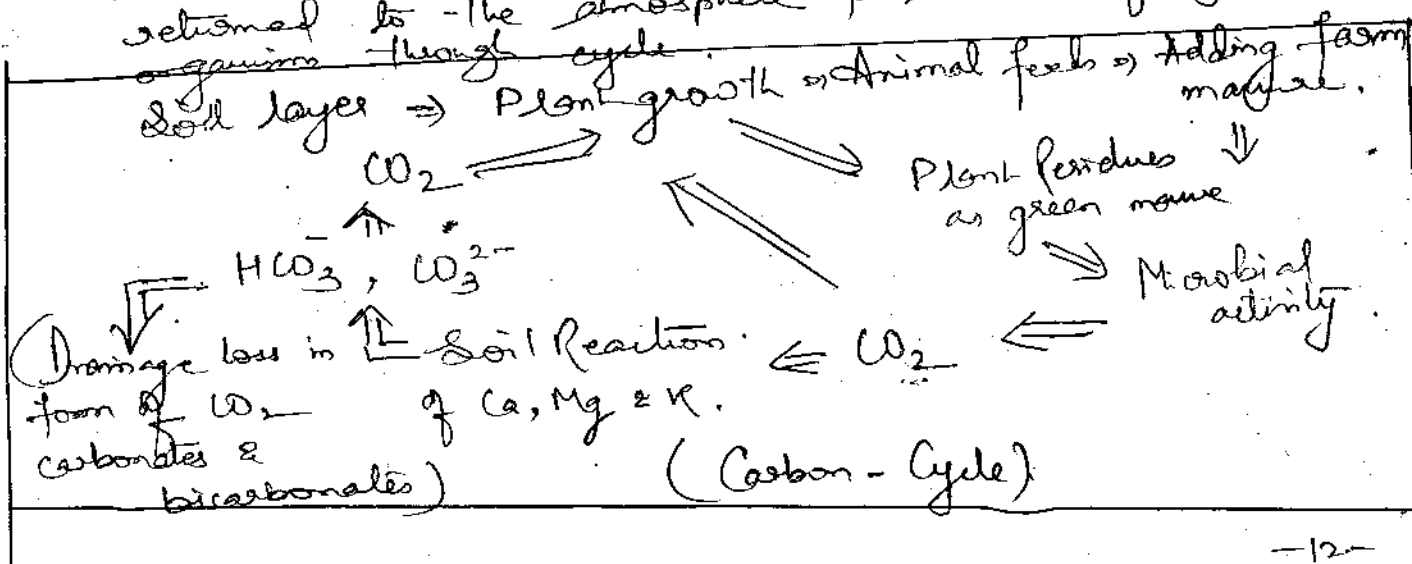 returned to the atmosphere
organism through cycle.
Soil layer ⇒ Plant growth ⇒ Animal feeds ⇒ Adding farm
manure.
CO₂
Plant Residues
as green manure
HCO₃⁻, CO₃²⁻
Microbial
activity.
(Drainage loss in
form of CO₂
carbonates &
bicarbonates)
Soil Reaction
of Ca, Mg & K.
CO₂
(Carbon - Cycle)
-12-